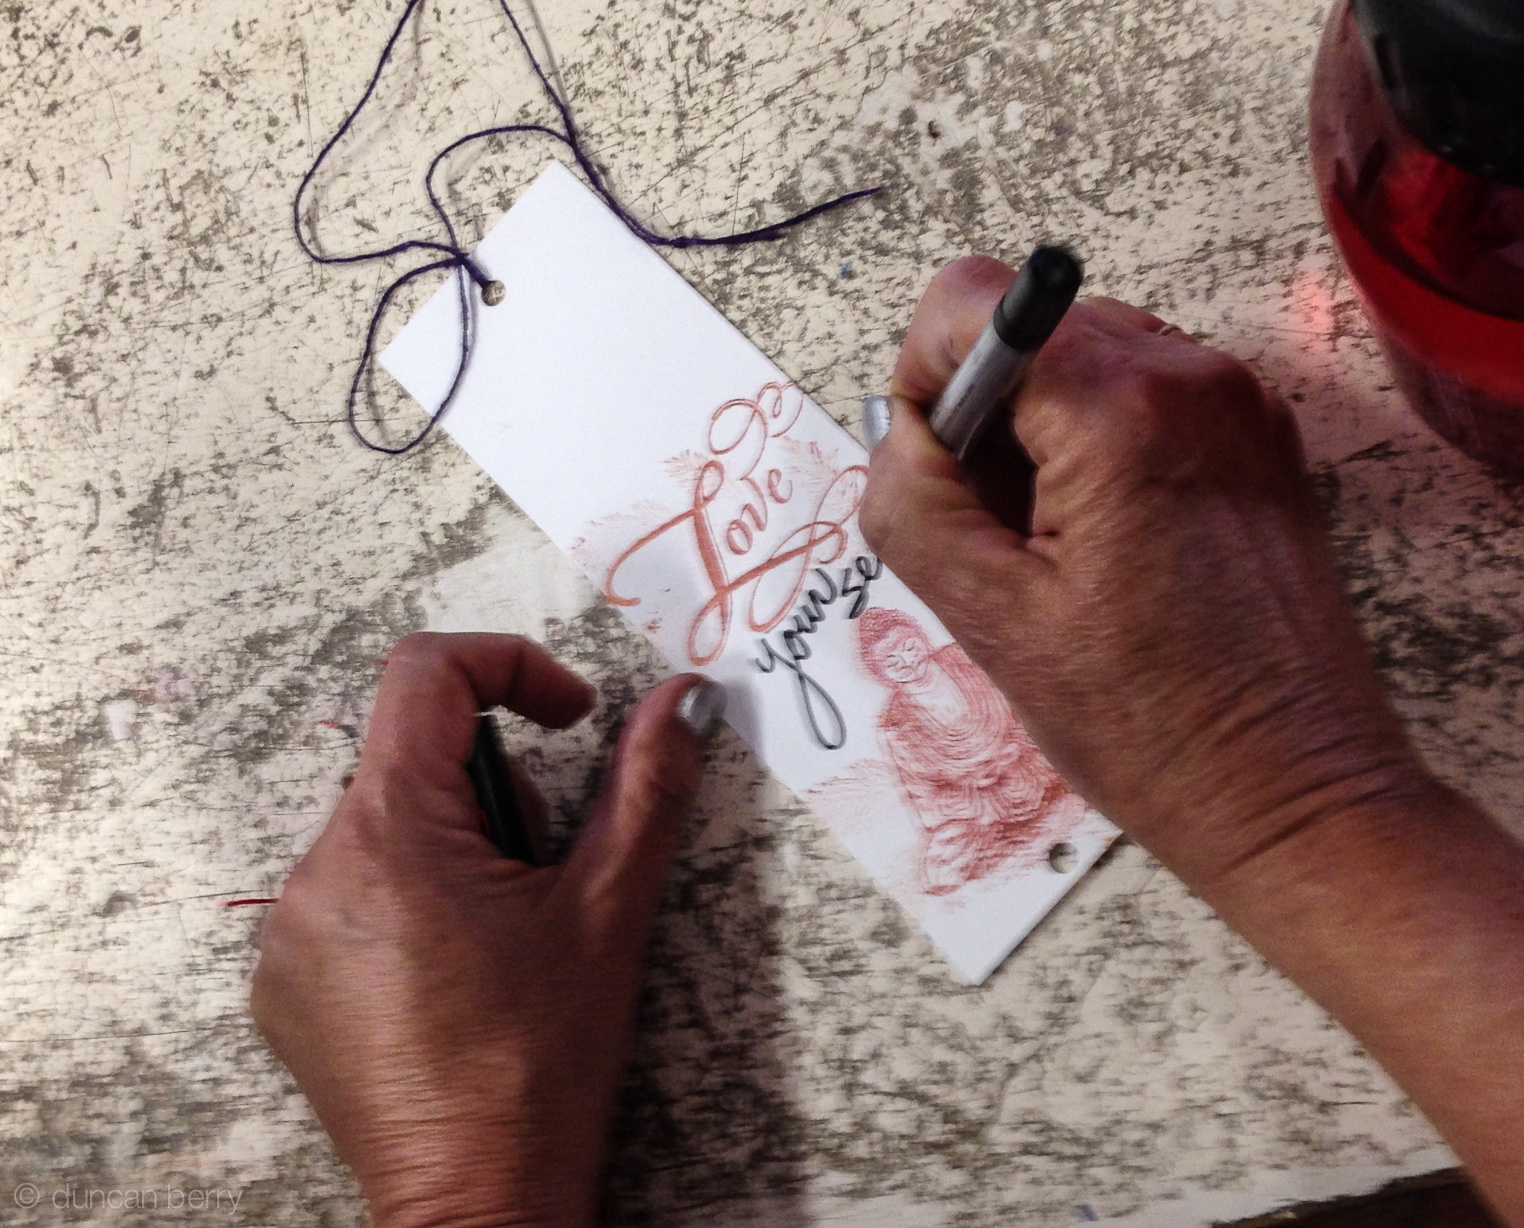 Love
yourse
© duncan berry